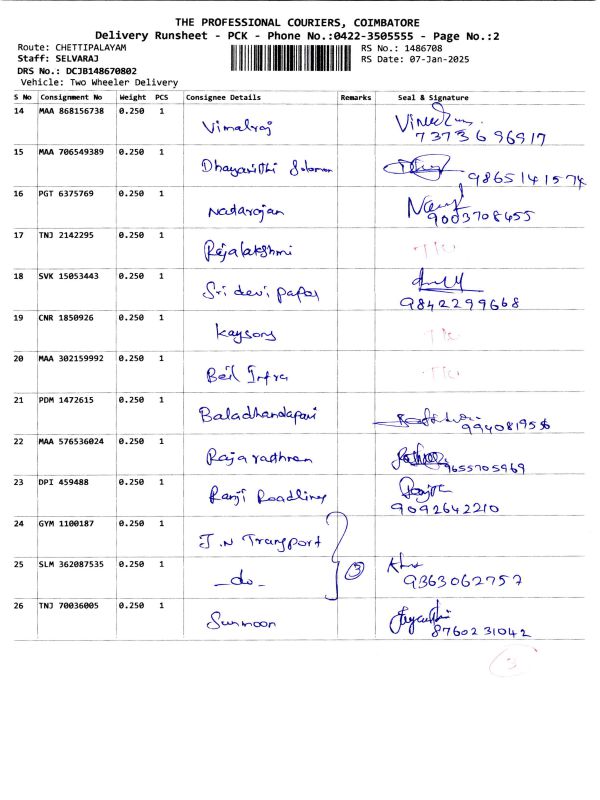 THE PROFESSIONAL COURIERS, COIMBATORE
Delivery Runsheet - PCK - Phone No.:0422-3505555 - Page No.:2
Route: CHETTIPALAYAM RS No.: 1486708
Staff: SELVARAJ RS Date: 07-Jan-2025
DRS No.: DCJB148670802
Vehicle: Two Wheeler Delivery
S No Consignment No Weight PCS Consignee Details Remarks Seal & Signature
14 MAA 868156738 0.250 1 Vimalraj
7373696917
15 MAA 706549389 0.250 1 Dhayanithi Solomon
9865141574
16 PGT 6375769 0.250 1 Natarajan
9003708455
17 TNJ 2142295 0.250 1 Rajalakshmi
18 SVK 15053443 0.250 1 Sri devi papas
9842299668
19 CNR 1850926 0.250 1 Kaysons
20 MAA 302159992 0.250 1 Beil Infra
21 PDM 1472615 0.250 1 Baladhandapani
22 MAA 576536024 0.250 1 Rajarathnam
9655705969
23 DPI 459488 0.250 1 Ranji Roadlines
9092642210
24 GYM 1100187 0.250 1 J.N Transport
25 SLM 362087535 0.250 1 -do- 3
9363062757
26 TNJ 70036005 0.250 1 Sunmoon
8760231042
3